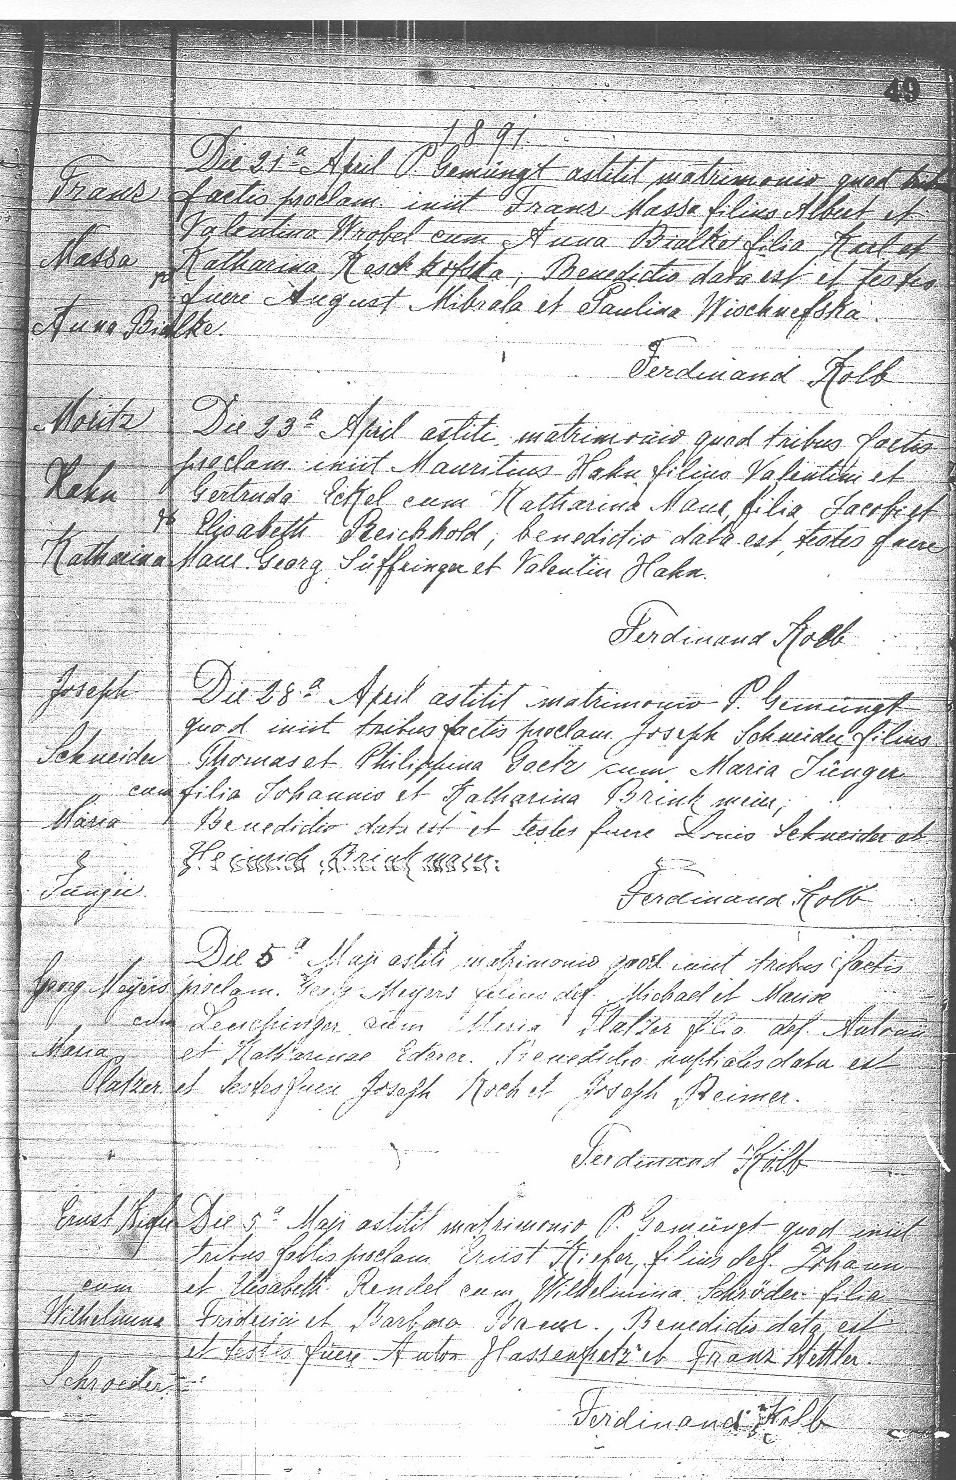 49
1891.
Franz
Massa
Anna Bialke.
Die 21ª April P. Gemüngt astitit matrimonio quod trib
factis proclam. iniit Franz Massa filius Albert et
Valentina Wrobel cum Anna Bialke filia Karl et
Katharina Reschkofska, Benedictio data est et testes
fuere August Mibrala et Paulina Wischnefska.
Ferdinand Kolb
Moritz
Hahn
Katharina
Die 23ª April astiti matrimonio quod tribus factis
proclam. iniit Mauritius Hahn filius Valentini et
Gertruda Eckel cum Katharina Maue, filia Jacobi et
Elisabeth Reichhold; benedictio data est, testes fuere
Maue. Georg Süffringer et Valentin Hahn.
Ferdinand Kolb
Joseph
Schneider
cum
Maria
Die 28ª April astitit matrimonio P. Gemüngt
quod iniit tribus factis proclam. Joseph Schneider filius
Thomas et Philippina Goetz cum Maria Jünger
filia Johannis et Katharina Brinkmeier;
Benedictio data est et testes fuere Louis Schneider et
Brinkmann.
Ferdinand Kolb
Georg Meyers
cum
Maria
Platzer
Die 5ª Maji astiti matrimonio quod iniit tribus factis
proclam. Georg Meyers filius def. Michael et Mariae
cum Maria Platzer filia def. Antonii
et Katharinae Ederer. Benedictio nuptialis data est
et testes fuere Joseph Koch et Joseph Reimer.
Ferdinand Kolb
Ernst Kiefer
cum
Wilhelmina
Schroeder
Die 5ª Maji astitit matrimonio P. Gemüngt quod iniit
tribus factis proclam. Ernst Kiefer, filius def. Johann
et Elisabeth Rendel cum Wilhelmina Schröder filia
Friderici et Barbara Bauer. Benedictio data est
et testes fuere Anton Hassenpetz et Franz Hettler.
Ferdinand Kolb